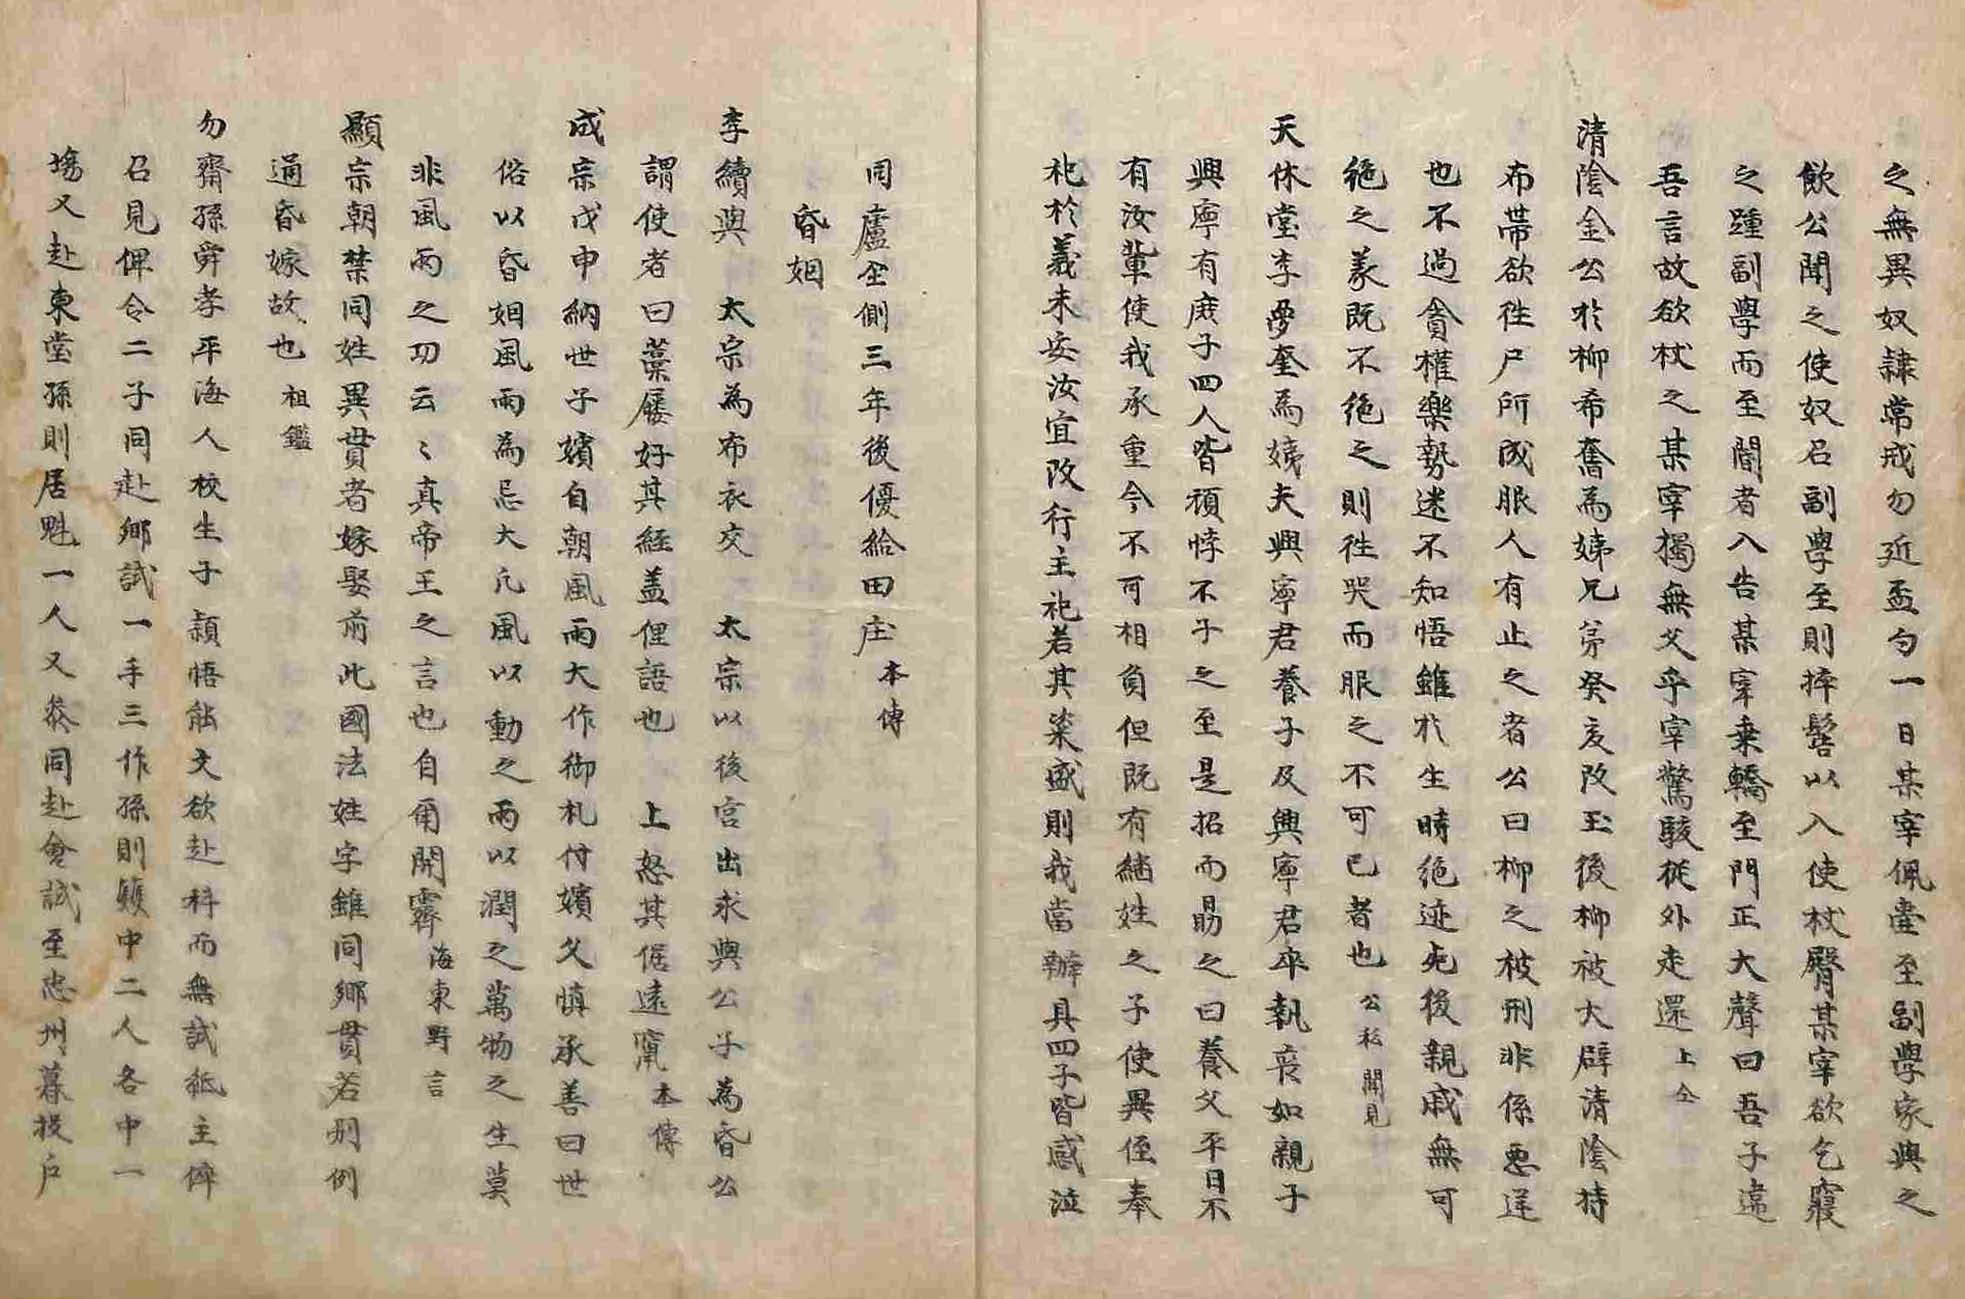 之無異奴隷常戒勿近盃勺一日某宰佩壺至副學家與之
飮公聞之使奴召副學至則捽髻以入使杖臀某宰欲乞寢
之踵副學而至閽者入告某宰乗轎至門正大聲曰吾子違
吾言故欲杖之某宰獨無父乎宰驚駭從外走還 上仝
清陰金公於柳希奮為娣兄弟癸亥改玉後柳被大辟清陰持
布帶欲徃尸所成服人有止之者公曰柳之被刑非係惡逆
也不過貪權樂勢迷不知悟雖於生時絶迹死後親戚無可
絶之義既不絶之則徃哭而服之不可已者也 公私聞見
天休堂李夢奎為姨夫興寧君養子及興寧君卒執喪如親子
興寧有庶子四人皆頑悖不子之至是招而勗之曰養父平日不
有汝輩使我承重今不可相負但既有緦姓之子使異侄奉
祀於義未安汝宜改行主祀若其粢盛則我當辦具四子皆感泣
同廬全側三年後優給田庄 本傳
昏姻
李續與 太宗為布衣交 太宗以後宮出求與公子為昏公
謂使者曰藁屨好其経盖俚語也 上怒其倨遠竄 本傳
成宗戊申納世子嬪自朝風雨大作御札付嬪父慎承善曰世
俗以昏姻風雨為忌大凡風以動之雨以潤之萬物之生莫
非風雨之功云〻真帝王之言也自甬開霽 海東野言
顯宗朝禁同姓異貫者嫁娶前此國法姓字雖同鄉貫若別例
通昏嫁故也 祖鑑
勿齋孫舜孝平海人校生子頴悟能文欲赴科而無試紙主倅
召見俾令二子同赴鄉試一手三作孫則䕶中二人各中一
塲又赴東堂孫則居魁一人又叅同赴會試至忠州暮投戶